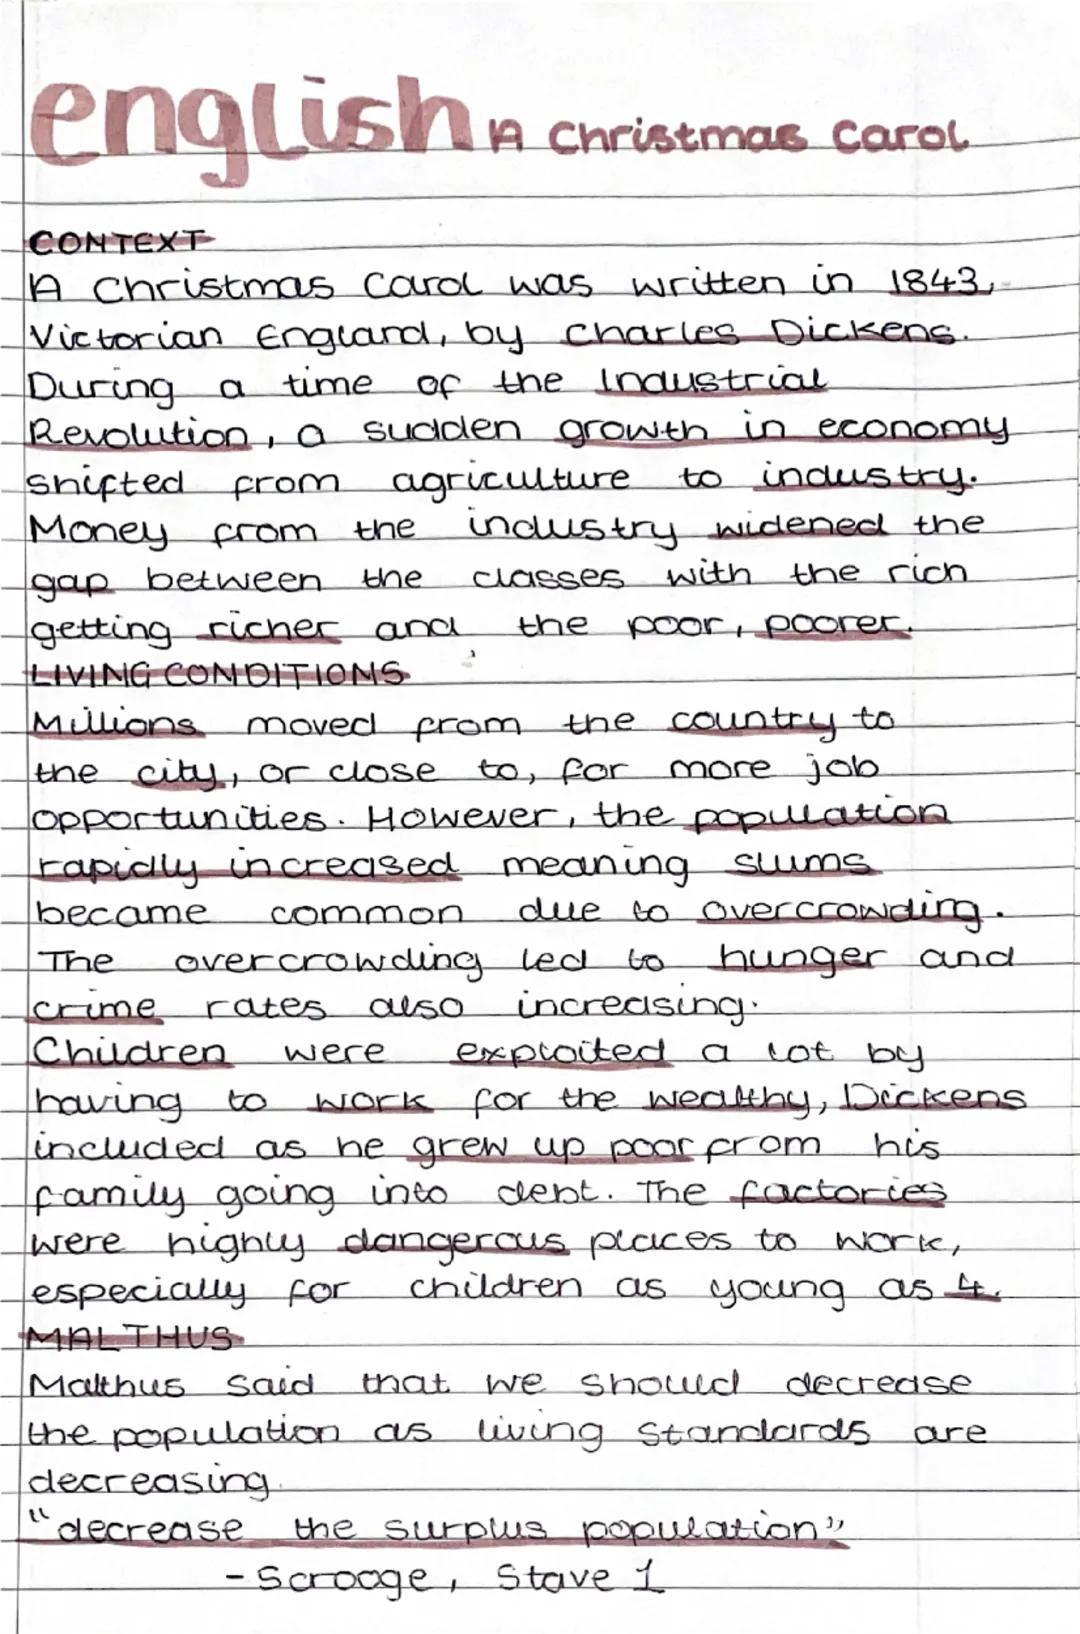 english A Christmas Carol
CONTEXT
A Christmas Carol was written in 1843,
Victorian England, by Charles Dickens.
During a time of the Industrial
Revolution, a sudden growth in economy
shifted from agriculture to industry.
Money from the industry widened the
gap between the classes with the rich
getting richer and the poor, poorer.
LIVING CONDITIONS
Millions moved from the country to
the city, or close to, for more job
opportunities. However, the population
rapidly increased meaning slums
became common due to overcrowding.
The overcrowding led to hunger and
crime rates also increasing.
Children were exploited a lot by
having to work for the wealthy, Dickens
included as he grew up poor from his
family going into debt. The factories
were highly dangerous places to work,
especially for children as young as 4.
MALTHUS
Malthus said that we should decrease
the population as living standards are
decreasing.
"decrease the surplus population"
- Scrooge, Stave 1